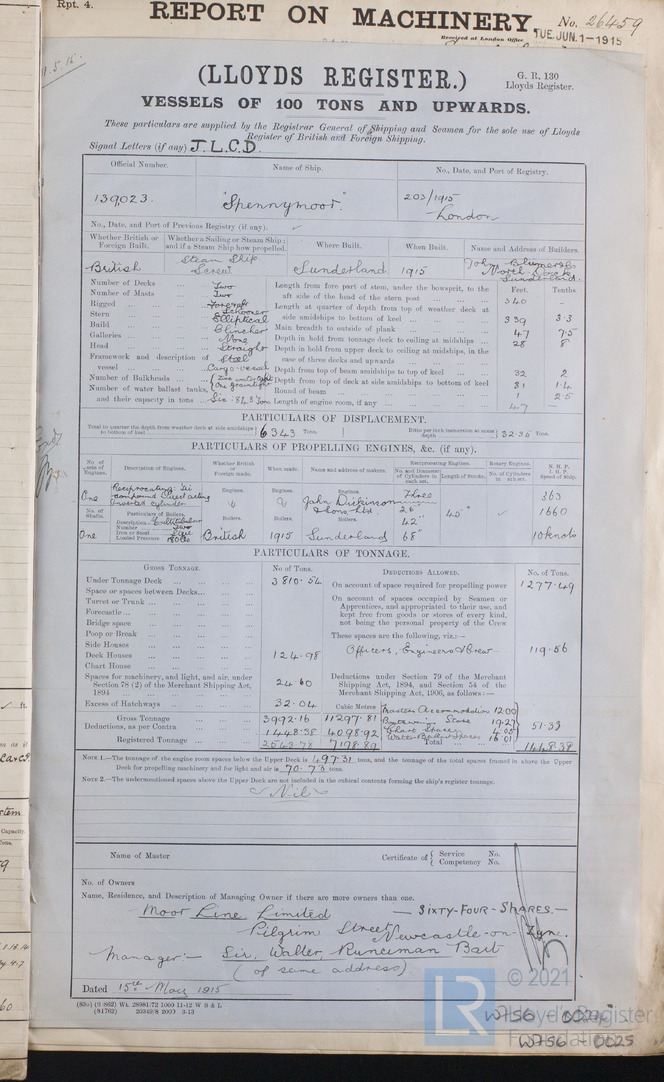 Rpt. 4.
REPORT ON MACHINERY.
No. 26459
Received at London Office
TUE. JUN. 1-1915
(LLOYDS REGISTER.)
G. R. 130
Lloyds Register.
VESSELS OF 100 TONS AND UPWARDS.
These particulars are supplied by the Registrar General of Shipping and Seamen for the sole use of Lloyds
Register of British and Foreign Shipping.
Signal Letters (if any) J.L.C.D.
Official Number. Name of Ship. No., Date, and Port of Registry.
139,023. "Spennymoor." 203/1915
London
No., Date, and Port of Previous Registry (if any).
Whether British or Foreign Built. Whether a Sailing or Steam Ship; and if a Steam Ship how propelled. Where Built. When Built. Name and Address of Builders.
British Steam Ship Screw Sunderland 1915 John Blumer & Co North Dock Sunderland.
Feet. Tenths
Number of Decks ... Two
Number of Masts ... Two
Rigged ... Schooner
Stern ... Elliptical
Build ... Clincher
Galleries ... None
Head ... Straight
Framework and description of vessel Steel Cargo
Number of Bulkheads
Number of water ballast tanks, and their capacity in tons ... Six. 843 Tons
Length from fore part of stem, under the bowsprit, to the aft side of the head of the stern post 340 -
Length at quarter of depth from top of weather deck at side amidships to bottom of keel 339 3.3
Main breadth to outside of plank 47 7.5
Depth in hold from tonnage deck to ceiling at midships 28 8
Depth in hold from upper deck to ceiling at midships, in the case of three decks and upwards
Depth from top of beam amidships to top of keel 32 2
Depth from top of deck at side amidships to bottom of keel 31 1.4
Round of beam 1 2.5
Length of engine room, if any 47 -
PARTICULARS OF DISPLACEMENT.
Total to quarter the depth from weather deck at side amidships to bottom of keel 6343 Tons. Ditto per inch immersion at same depth 32.35 Tons.
PARTICULARS OF PROPELLING ENGINES, &c. (if any).
No. of sets of Engines. Description of Engines. Whether British or Foreign made. When made. Name and address of makers. Reciprocating Engines. No. and Diameter of Cylinders in each set. Length of Stroke. Rotary Engines. No. of Cylinders in each set. N. H. P. I. H. P. Speed of Ship.
One Reciprocating Tri compound direct acting inverted cylinder Engines. Engines. Engines. John Dickinson & Sons Ltd. Three 26" 42" 68" 45" 363 1660 10 knots
No. of Shafts. Particulars of Boilers.
Description Multitubular
Number Two
Iron or Steel Steel
Loaded Pressure 180 lbs
One Boilers. British Boilers. 1915 Boilers. Sunderland
PARTICULARS OF TONNAGE.
GROSS TONNAGE. No of Tons. DEDUCTIONS ALLOWED. No. of Tons.
Under Tonnage Deck 3810.54
Space or spaces between Decks
Turret or Trunk
Forecastle
Bridge space
Poop or Break
Side Houses
Deck Houses 124.98
Chart House
Spaces for machinery, and light, and air, under Section 78 (2) of the Merchant Shipping Act, 1894 24.60
Excess of Hatchways 32.04
Cubic Metres
Gross Tonnage 3992.16 11297.81
Deductions, as per Contra 1448.38 4098.92
Registered Tonnage 2543.78 7198.89
On account of space required for propelling power 1277.49
On account of spaces occupied by Seamen or Apprentices, and appropriated to their use, and kept free from goods or stores of every kind, not being the personal property of the Crew
These spaces are the following, viz.:—
Officers, Engineers & Crew 119.56
Deductions under Section 79 of the Merchant Shipping Act, 1894, and Section 54 of the Merchant Shipping Act, 1906, as follows:—
Masters Accommodation 12.00
Boatswains Store 19.27
Chart Space 4.05
Water Ballast Spaces 16.01
51.33
Total 1448.38
NOTE 1.—The tonnage of the engine room spaces below the Upper Deck is 497.31 tons, and the tonnage of the total spaces framed in above the Upper
Deck for propelling machinery and for light and air is 70.73 tons.
NOTE 2.—The undermentioned spaces above the Upper Deck are not included in the cubical contents forming the ship's register tonnage.
Nil
Name of Master Certificate of { Service No. Competency No.
No. of Owners
Name, Residence, and Description of Managing Owner if there are more owners than one.
Moor Line Limited — SIXTY-FOUR-SHARES.—
Pilgrim Street, Newcastle-on-Tyne.
Manager:— Sir Walter Runciman Bart
(of same address)
Dated 15th May 1915
(80o) (9 862) Wt. 28981/72 1000 11-12 W B & L
(81762) 20349/8 2000 3-13
© 2021
LR Lloyd's Register
Foundation
W756-0024
W756-0025